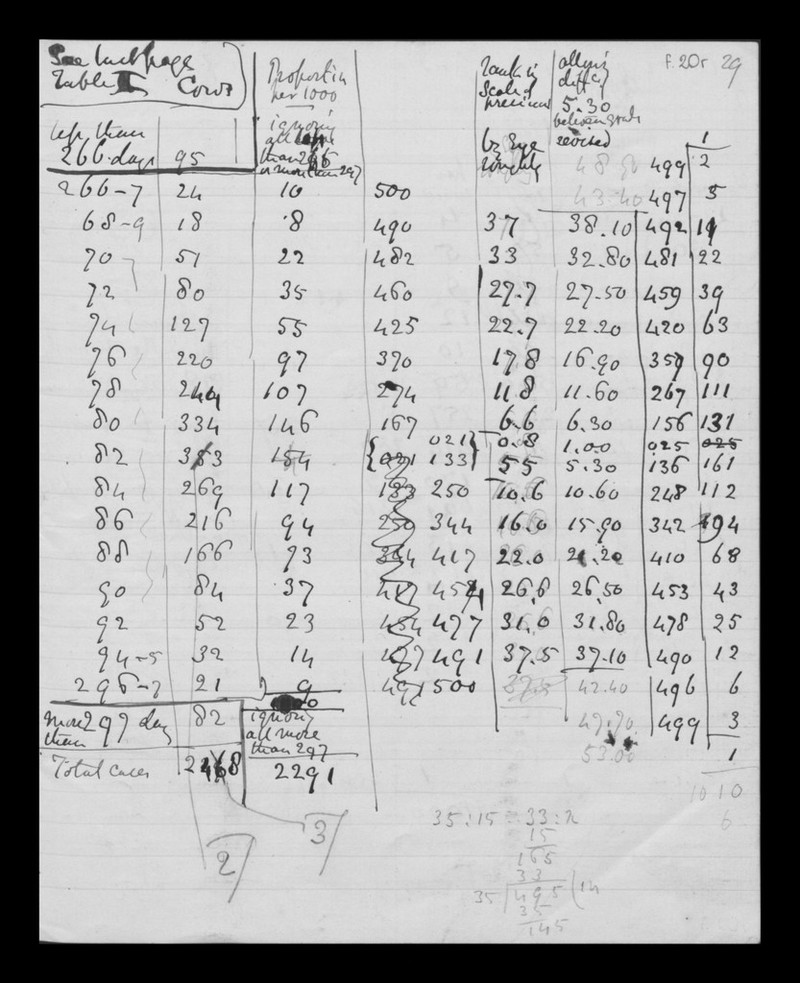 See last page Table I Cows Proportion per 1000 rank in Scale of allg in diffce 5.30 f.20r 29
less than ignoring all than 266 or more than 297 by Eye roughly between grade revised 1
266. days 95 48.90 499 2
266-7 24 10 500 43.40 497 5
68-9 18 8 490 37 38.10 492 11
70 51 22 482 33 32.80 481 22
72 80 35 460 27.7 27.50 459 39
74 127 55 425 22.7 22.20 420 63
76 220 97 370 17.8 16.90 357 90
78 244 107 274 11.8 11.60 267 111
80 334 146 167 6.6 6.30 156 131
021 0.8 1.00 025 025
82 353 154 { 021 133 } 5.5 5.30 136 161
84 269 117 133 250 10.6 10.60 248 112
86 216 94 250 344 16.0 15.90 342 94
88 166 73 344 417 22.0 21.20 410 68
90 84 37 417 454 26.6 26.50 453 43
92 52 23 454 477 31.0 31.80 478 25
94-5 32 14 477 491 37.5 37.10 490 12
296-7 21 9 491 500 37.5 42.40 496 6
more than 297 days 82 ignoring all more than 297 47.70 499 3
53.00 1
Total cases 2468 2291
10 10
6
2 3
35:15 :: 33:x
15
165
33
35 ) 495 ( 14
35
145